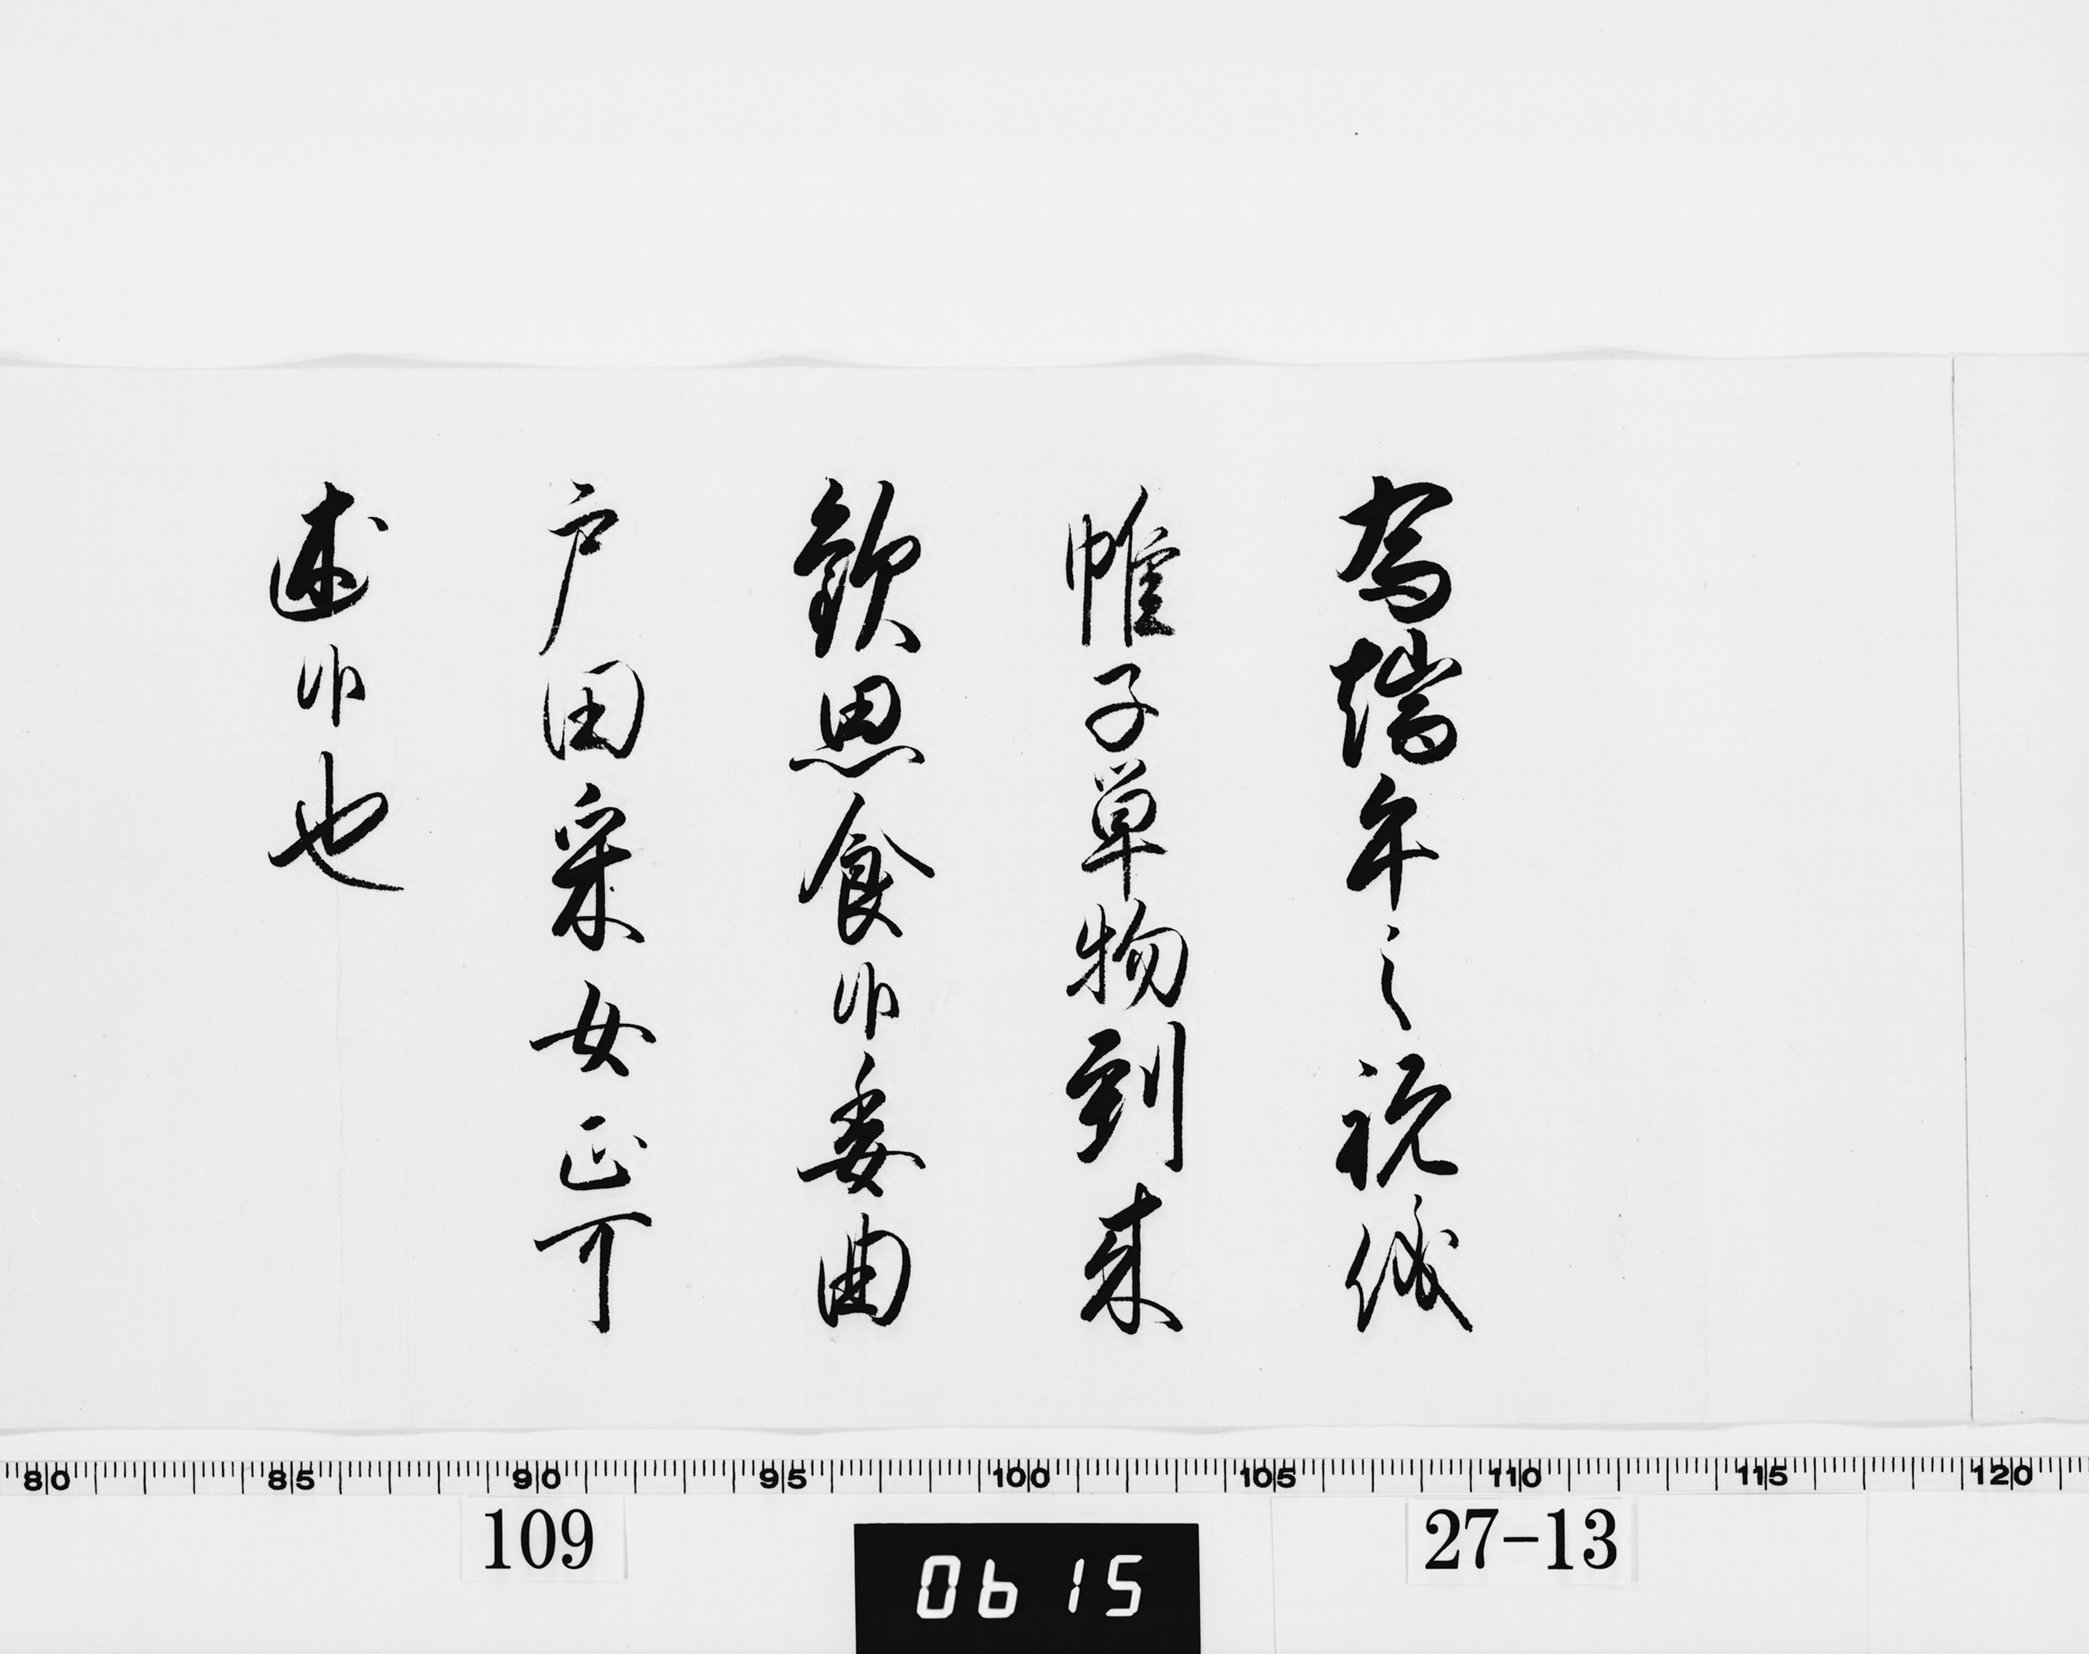 為端午之祝儀
帷子単物到来
歓思食候委曲
戸田采女正可
述候也
80 85 90 95 100 105 110 115 120
109
0615
27-13